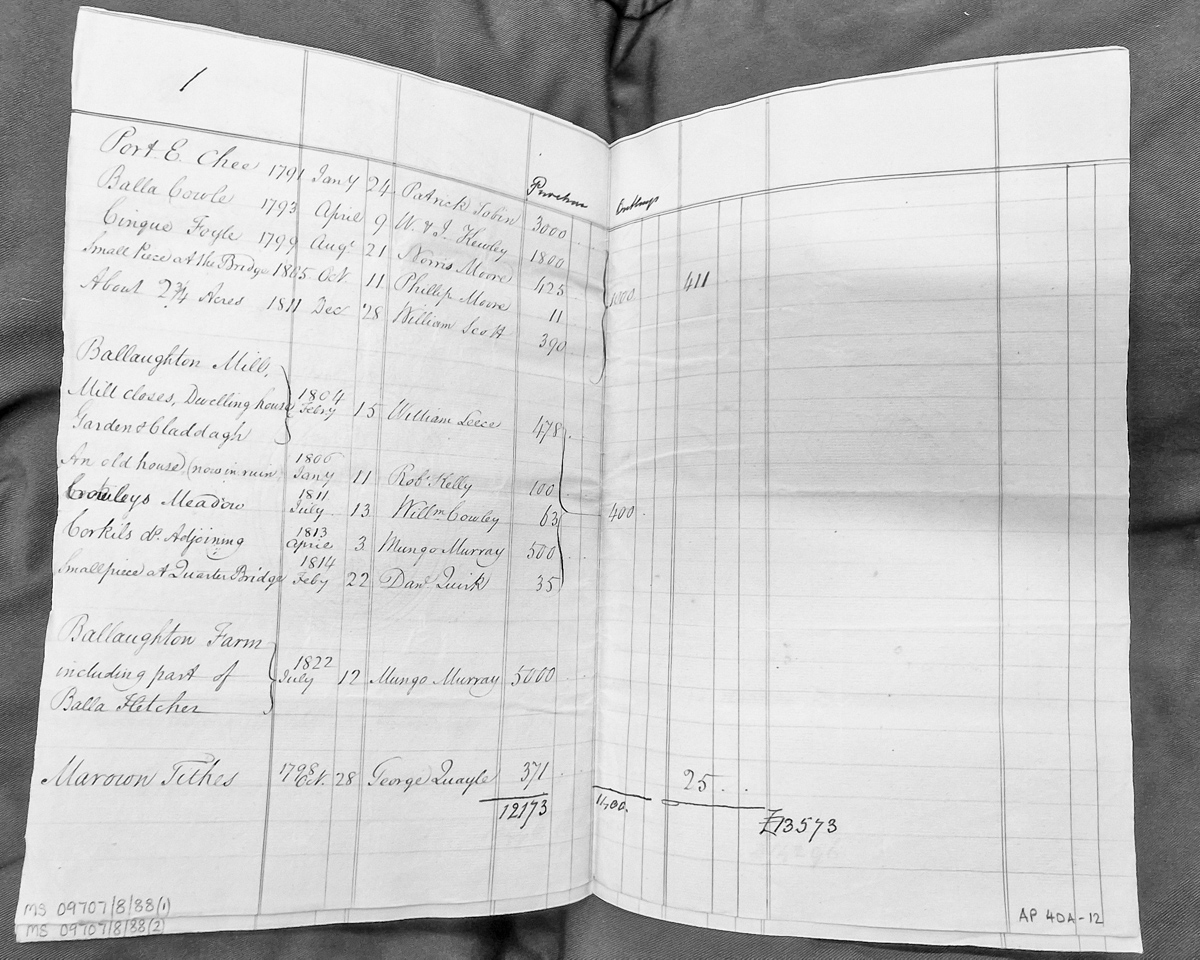 1
Purchase Outlays
Port E Chee 1791 Jany 24 Patrick Tobin 3000
Balla Cowle 1793 April 9 W. & J. Kewley 1800
Cinque Foyle 1799 Augt 21 Norris Moore 425
Small Piece at the Bridge 1805 Oct 11 Phillip Moore 11 1000 411
About 2 3/4 Acres 1811 Dec 28 William Scott 390
Ballaughton Mill,
Mill closes, Dwelling house 1804 Febry 15 William Leece 478
Garden & Claddagh
An old house (now in ruin) 1806 Jany 11 Robt Kelly 100
Cowleys Meadow 1811 July 13 Willm Cowley 63 400
Corkils &c Adjoining 1813 April 3 Mungo Murray 500
Small piece at Quarter Bridge 1814 Feby 22 Danl Quirk 35
Ballaughton Farm
including part of 1822 July 12 Mungo Murray 5000
Balla Fletcher
Marown Tithes 1798 Oct. 28 George Quayle 371 25
12173 1400. £13573
MS 09707/8/88(1)
MS 09707/8/88(2)
AP 40A-12